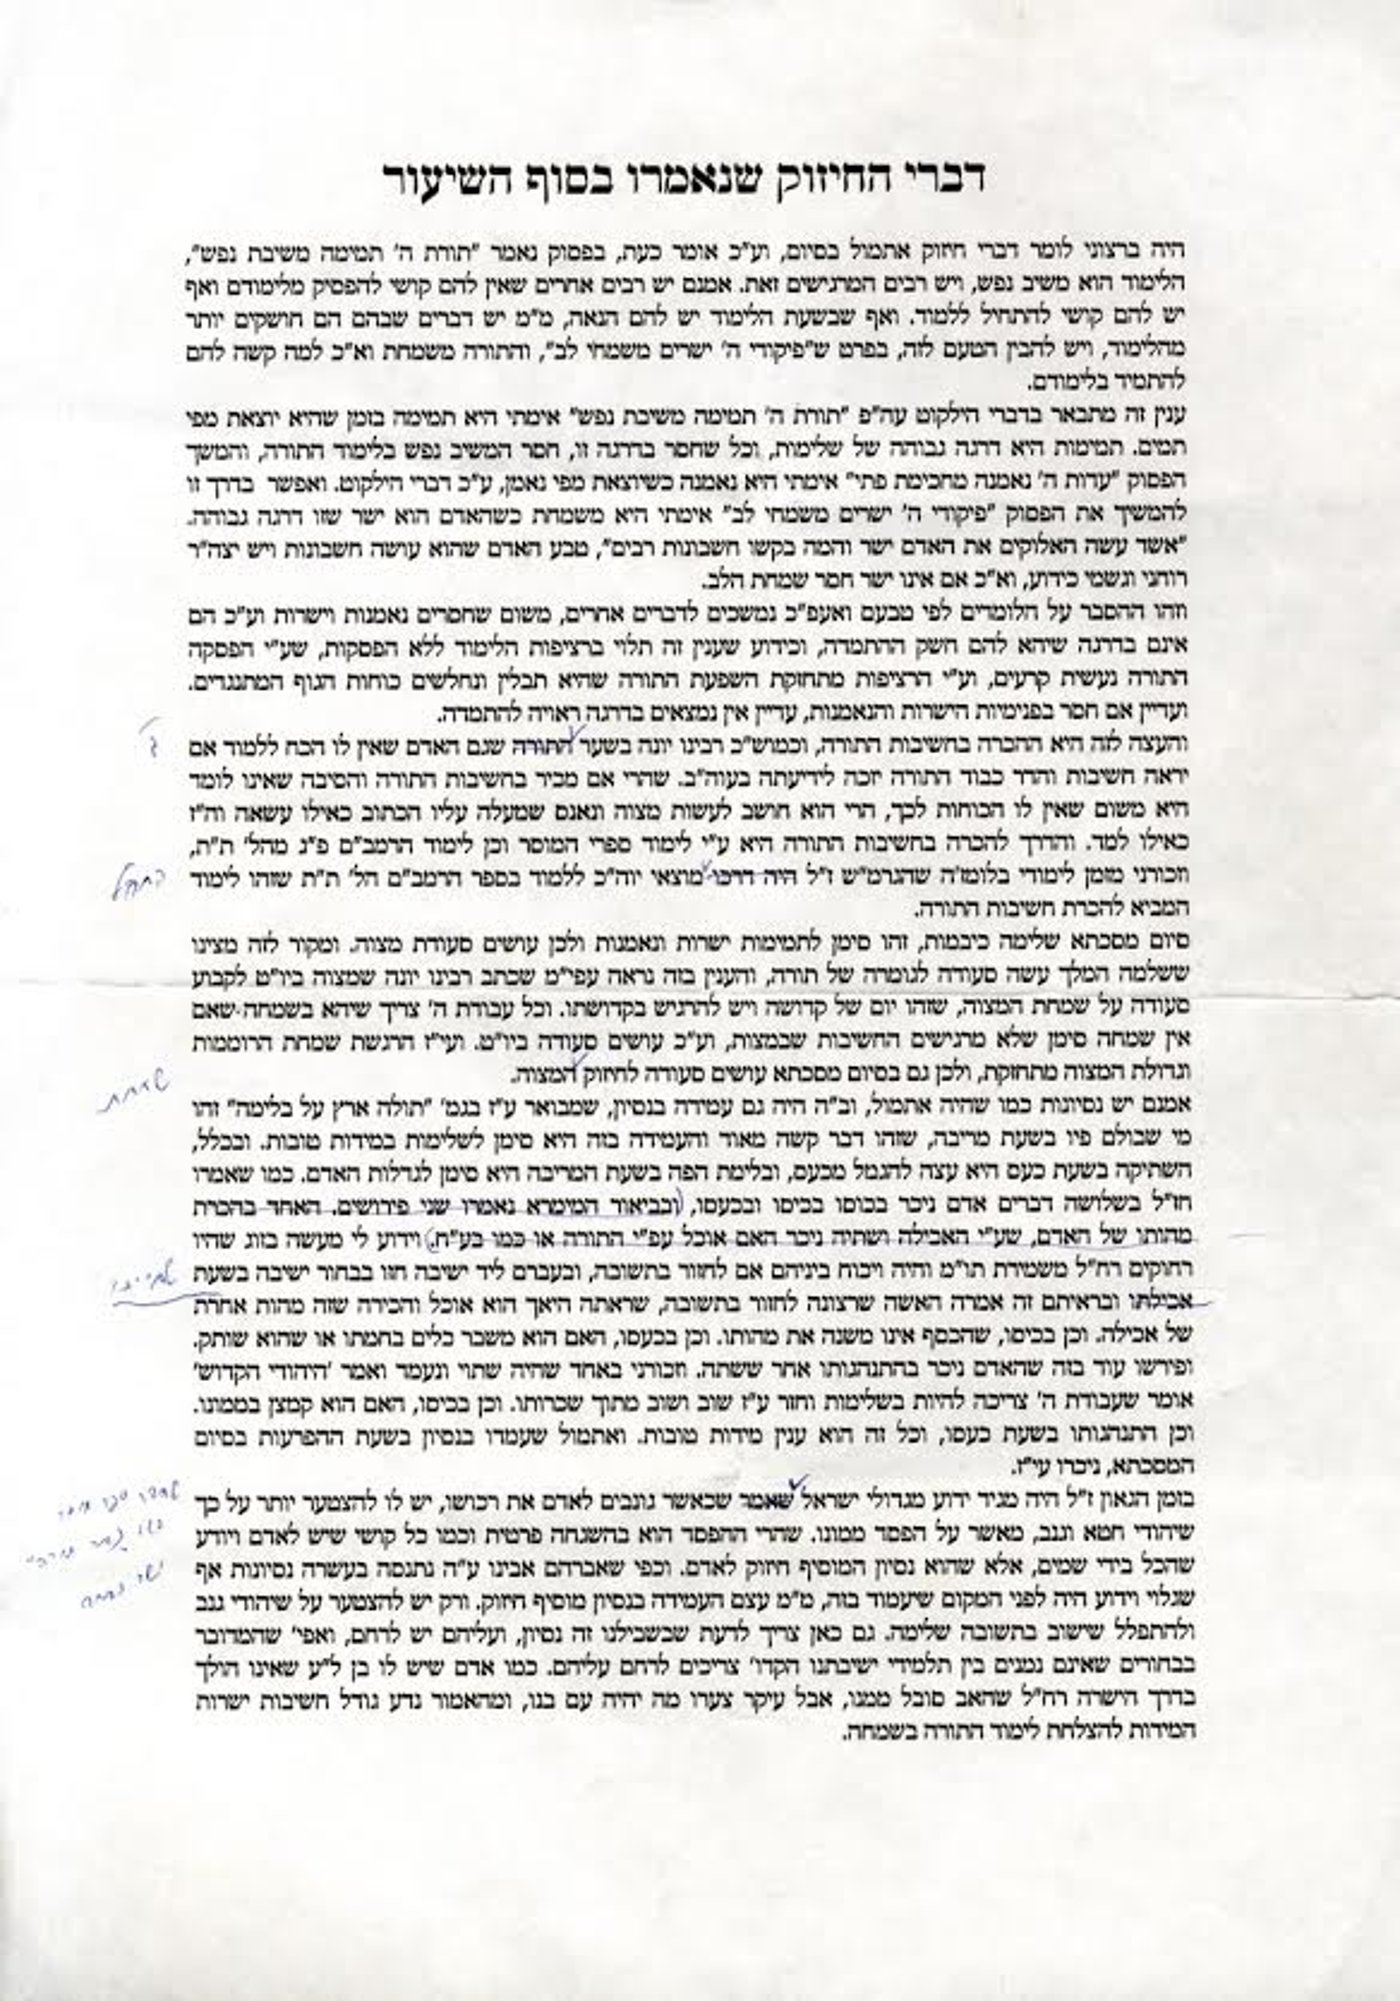 דברי החיזוק שנאמרו בסוף השיעור
היה ברצוני לומר דברי חיזוק אתמול בסיום, וע"כ אומר כעת, בפסוק נאמר "תורת ה' תמימה משיבת נפש",
הלימוד הוא משיב נפש, ויש רבים המרגישים זאת. אמנם יש רבים אחרים שאין להם קושי להפסיק מלימודם ואף
יש להם קושי להתחיל ללמוד. ואף שבשעת הלימוד יש להם הנאה, מ"מ יש דברים שבהם הם חושקים יותר
מהלימוד, ויש להבין הטעם לזה, בפרט ש"פיקודי ה' ישרים משמחי לב", והתורה משמחת וא"כ למה קשה להם
להתמיד בלימודם.
ענין זה מתבאר בדברי הילקוט עה"פ "תורת ה' תמימה משיבת נפש" אימתי היא תמימה בזמן שהיא יוצאת מפי
תמים. תמימות היא דרגה גבוהה של שלימות, וכל שחסר בדרגה זו, חסר המשיב נפש בלימוד התורה, והמשך
הפסוק "עדות ה' נאמנה מחכימת פתי" אימתי היא נאמנה כשיוצאת מפי נאמן, ע"כ דברי הילקוט. ואפשר בדרך זו
להמשיך את הפסוק "פיקודי ה' ישרים משמחי לב" אימתי היא משמחת כשהאדם הוא ישר שזו דרגה גבוהה.
"אשר עשה האלוקים את האדם ישר והמה בקשו חשבונות רבים", טבע האדם שהוא עושה חשבונות ויש יצה"ר
רוחני וגשמי כידוע, וא"כ אם אינו ישר חסר שמחת הלב.
וזהו ההסבר על הלומדים לפי טבעם ואעפ"כ נמשכים לדברים אחרים, משום שחסרים נאמנות וישרות וע"כ הם
אינם בדרגה שיהא להם חשק ההתמדה, וכידוע שענין זה תלוי ברציפות הלימוד ללא הפסקות, שע"י הפסקה
התורה נעשית קרעים, וע"י הרציפות מתחזקת השפעת התורה שהיא תבלין ונחלשים כוחות הגוף המתנגדים.
ועדיין אם חסר בפנימיות הישרות והנאמנות, עדיין אין נמצאים בדרגה ראויה להתמדה.
והעצה לזה היא ההכרה בחשיבות התורה, וכמוש"כ רבינו יונה בשער התורה שגם האדם שאין לו הכח ללמוד אם
יראה חשיבות והדר כבוד התורה יזכה לידיעתה בעוה"ב. שהרי אם מכיר בחשיבות התורה והסיבה שאינו לומד
היא משום שאין לו הכוחות לכך, הרי הוא חושב לעשות מצוה ונאנס שמעלה עליו הכתוב כאילו עשאה וה"ז
כאילו למד. והדרך להכרה בחשיבות התורה היא ע"י לימוד ספרי המוסר וכן לימוד הרמב"ם פ"ג מהל' ת"ת,
וזכורני מזמן לימודי בלומז'ה שהגרמ"ש ז"ל היה דרכו מוצאי יוה"כ ללמוד בספר הרמב"ם הל' ת"ת שזהו לימוד
התחיל
המביא להכרת חשיבות התורה.
סיום מסכתא שלימה כיבמות, זהו סימן לתמימות ישרות ונאמנות ולכן עושים סעודת מצוה. ומקור לזה מצינו
ששלמה המלך עשה סעודה לגומרה של תורה, והענין בזה נראה עפי"מ שכתב רבינו יונה שמצוה ביו"ט לקבוע
סעודה על שמחת המצוה, שזהו יום של קדושה ויש להרגיש בקדושתו. וכל עבודת ה' צריך שיהא בשמחה שאם
אין שמחה סימן שלא מרגישים החשיבות שבמצות, וע"כ עושים סעודה ביו"ט. ועי"ז הרגשת שמחת הרוממות
וגדולת המצוה מתחזקת, ולכן גם בסיום מסכתא עושים סעודה לחיזוק המצוה.
שמחת
אמנם יש נסיונות כמו שהיה אתמול, וב"ה היה גם עמידה בנסיון, שמבואר ע"ז בגמ' "תולה ארץ על בלימה" זהו
מי שבולם פיו בשעת מריבה, שזהו דבר קשה מאוד והעמידה בזה היא סימן לשלימות במידות טובות. ובכלל,
השתיקה בשעת כעס היא עצה להגמל מכעס, ובלימת הפה בשעת המריבה היא סימן לגדלות האדם. כמו שאמרו
חז"ל בשלושה דברים אדם ניכר בכוסו בכיסו ובכעסו, (ובביאור המימרא נאמרו שני פירושים. האחד בהכרת
מהותו של האדם, שע"י האכילה ושתיה ניכר האם אוכל עפ"י התורה או כמו בע"ח.) וידוע לי מעשה בזוג שהיו
רחוקים רח"ל משמירת תו"מ והיה ויכוח ביניהם אם לחזור בתשובה, ובעברם ליד ישיבה חזו בבחור ישיבה בשעת
אכילתו ובראיתם זה אמרה האשה שרצונה לחזור בתשובה, שראתה היאך הוא אוכל והכירה שזה מהות אחרת
של אכילה. וכן בכיסו, שהכסף אינו משנה את מהותו. וכן בכעסו, האם הוא משבר כלים בחמתו או שהוא שותק.
ופירשו עוד בזה שהאדם ניכר בהתנהגותו אחר ששתה. וזכורני באחד שהיה שתוי ונעמד ואמר 'היהודי הקדוש'
אומר שעבודת ה' צריכה להיות בשלימות וחזר ע"ז שוב ושוב מתוך שכרותו. וכן בכיסו, האם הוא קמצן בממונו.
וכן התנהגותו בשעת כעסו, וכל זה הוא ענין מידות טובות. ואתמול שעמדו בנסיון בשעת ההפרעות בסיום
המסכתא, ניכרו עי"ז.
בזמן הגאון ז"ל היה מגיד ידוע מגדולי ישראל שאמר שכאשר גונבים לאדם את רכושו, יש לו להצטער יותר על כך
שיהודי חטא וגנב, מאשר על הפסד ממונו. שהרי ההפסד הוא בהשגחה פרטית וכמו כל קושי שיש לאדם ויודע
שהכל בידי שמים, אלא שהוא נסיון המוסיף חיזוק לאדם. וכפי שאברהם אבינו ע"ה נתנסה בעשרה נסיונות אף
שגלוי וידוע היה לפני המקום שיעמוד בזה, מ"מ עצם העמידה בנסיון מוסיף חיזוק. ורק יש להצטער על שיהודי גנב
ולהתפלל שישוב בתשובה שלימה. גם כאן צריך לדעת שבשבילנו זה נסיון, ועליהם יש לרחם, ואפי' שהמדובר
בבחורים שאינם נמנים בין תלמידי ישיבתנו הקדו' צריכים לרחם עליהם. כמו אדם שיש לו בן ל"ע שאינו הולך
בדרך הישרה רח"ל שהאב סובל ממנו, אבל עיקר צערו מה יהיה עם בנו, ומהאמור נדע גודל חשיבות ישרות
המידות להצלחת לימוד התורה בשמחה.